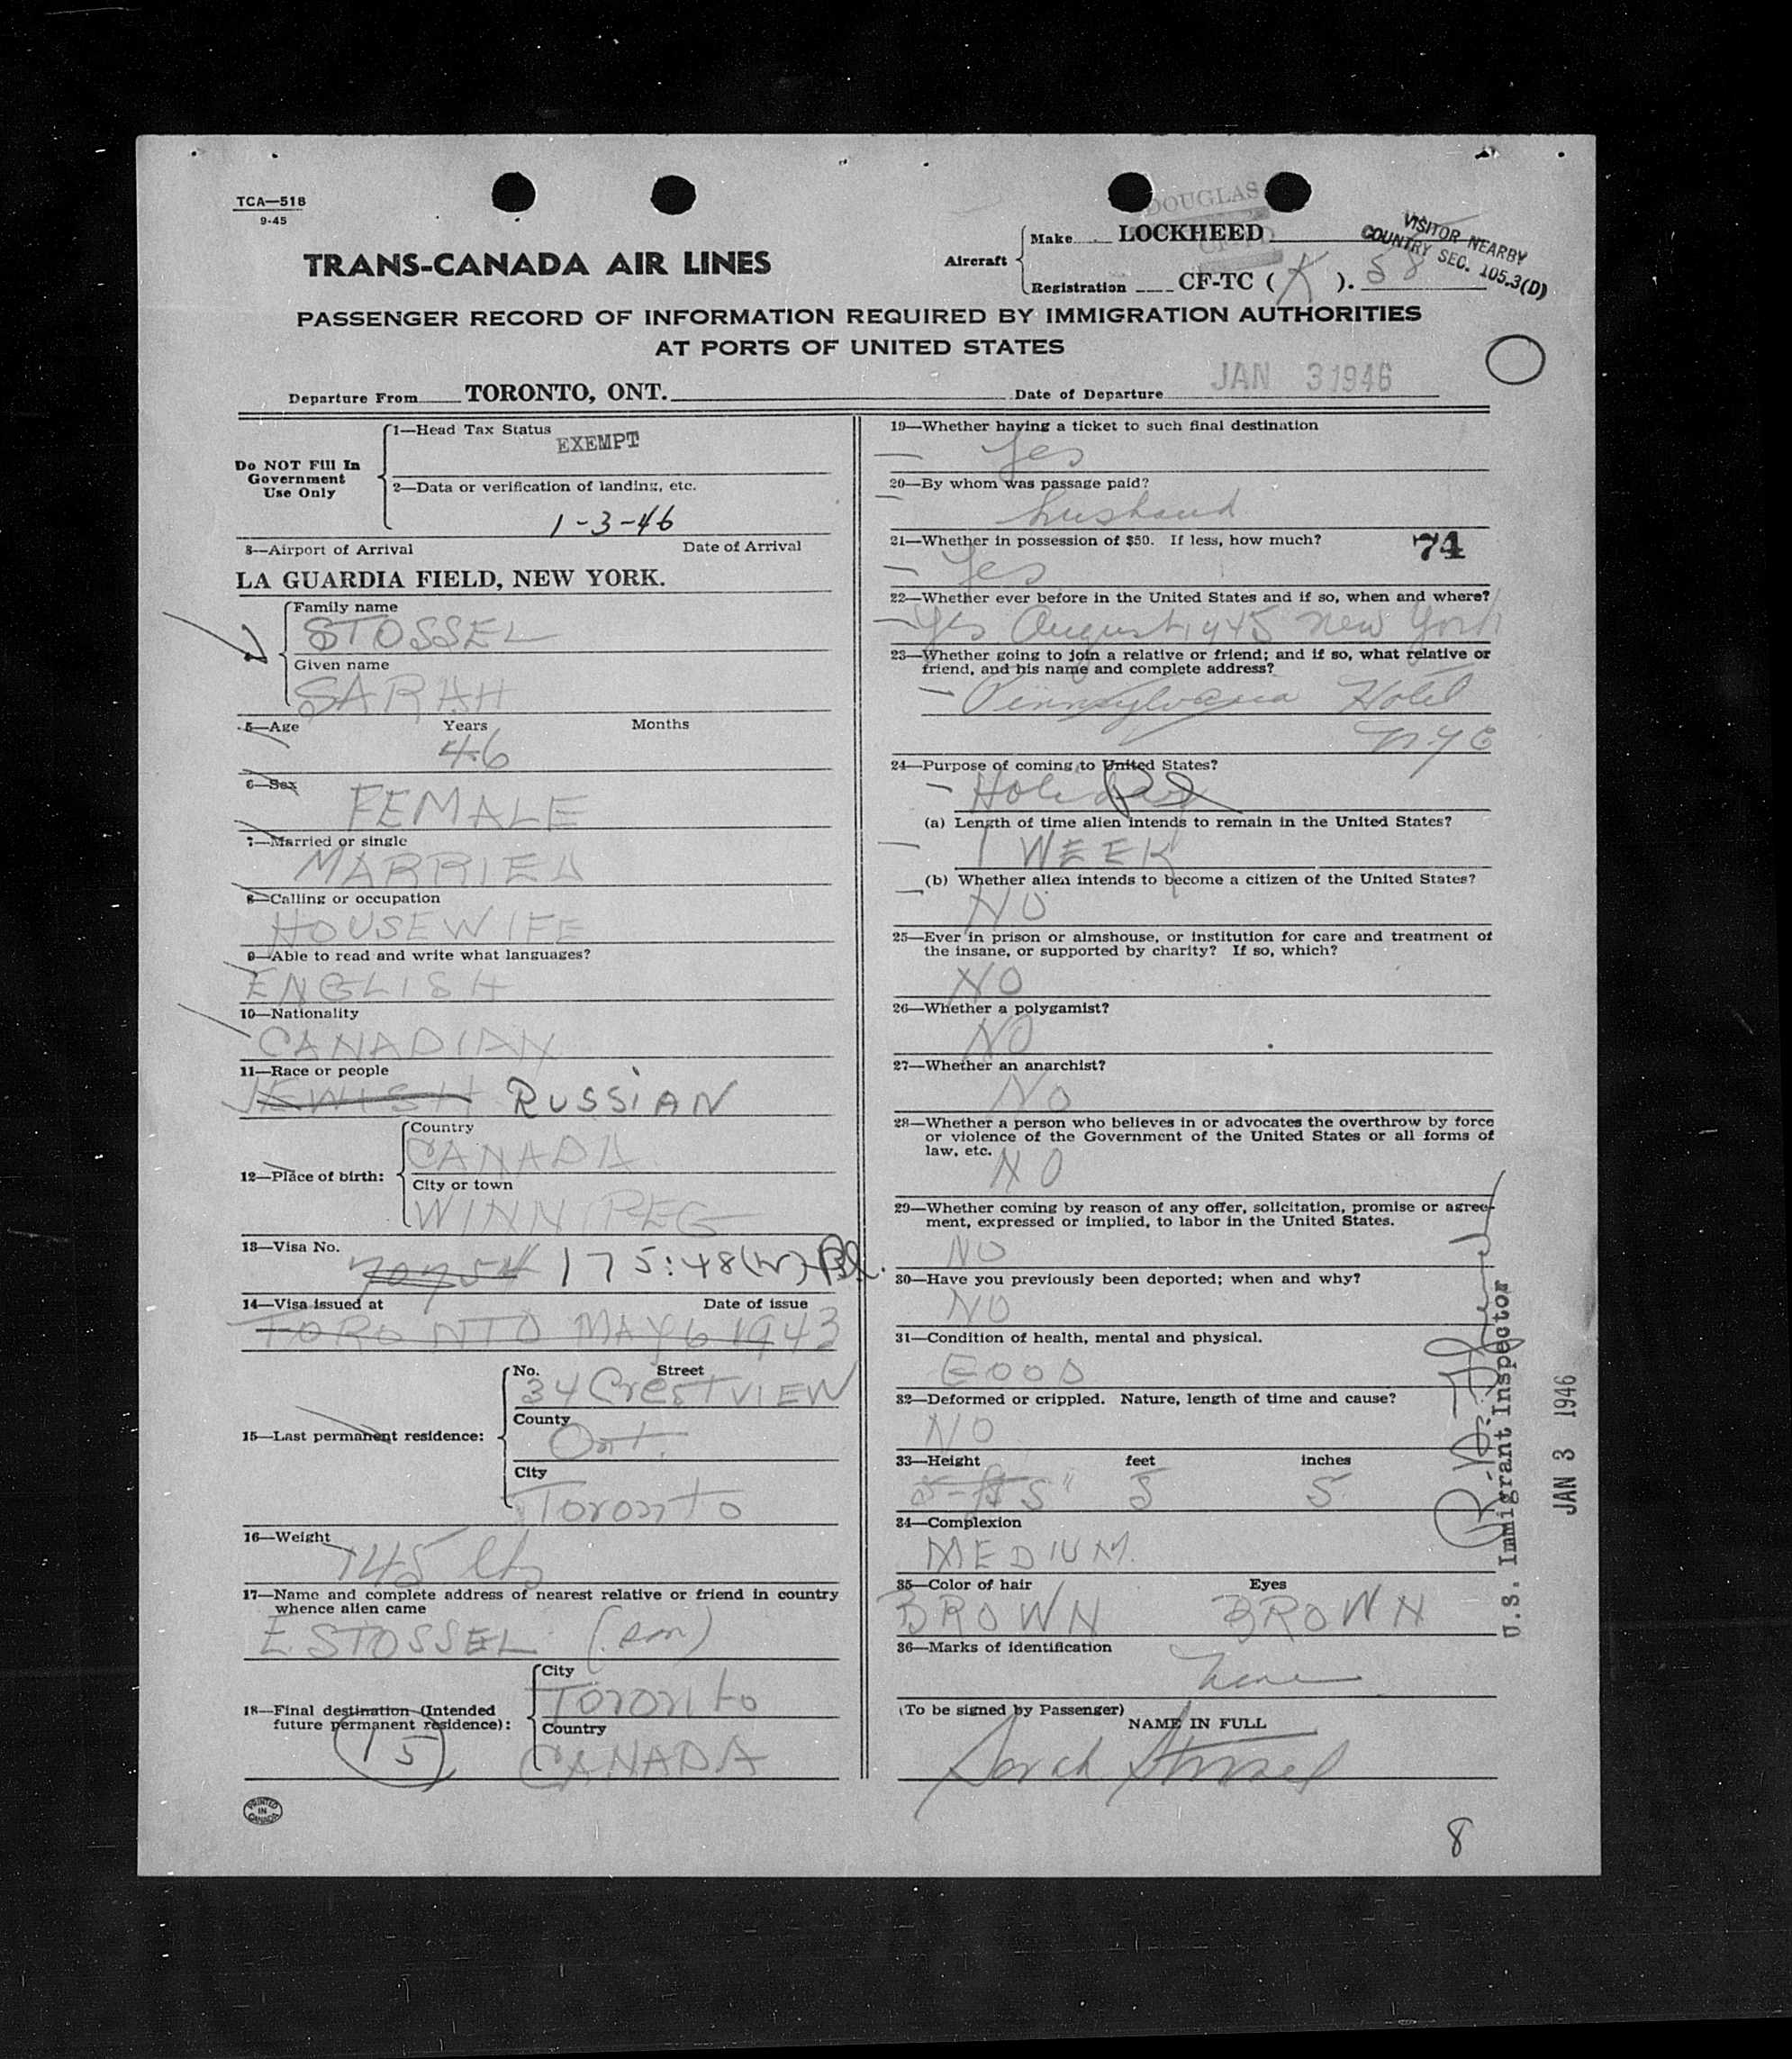 TCA—518
9-45
DOUGLAS
TRANS-CANADA AIR LINES
Aircraft
Make LOCKHEED
Registration CF-TC (K). 58
VISITOR NEARBY
COUNTRY SEC. 105.3(D)
PASSENGER RECORD OF INFORMATION REQUIRED BY IMMIGRATION AUTHORITIES
AT PORTS OF UNITED STATES
Departure From TORONTO, ONT. Date of Departure JAN 3 1946
Do NOT Fill In
Government
Use Only
1—Head Tax Status
EXEMPT
2—Data or verification of landing, etc.
1-3-46
3—Airport of Arrival Date of Arrival
LA GUARDIA FIELD, NEW YORK.
Family name
STOSSEL
Given name
SARAH
5—Age Years Months
46
6—Sex
FEMALE
7—Married or single
MARRIED
8—Calling or occupation
HOUSEWIFE
9—Able to read and write what languages?
ENGLISH
10—Nationality
CANADIAN
11—Race or people
JEWISH RUSSIAN
12—Place of birth:
Country
CANADA
City or town
WINNIPEG
13—Visa No.
175:48(w)
14—Visa issued at Date of issue
TORONTO MAY 6 1943
15—Last permanent residence:
No. Street
34 Crestview
County
Ont.
City
Toronto
16—Weight
145 lbs
17—Name and complete address of nearest relative or friend in country
whence alien came
E. STOSSEL (son)
18—Final destination (Intended
future permanent residence):
15
City
Toronto
Country
CANADA
PRINTED
IN
CANADA
19—Whether having a ticket to such final destination
Yes
20—By whom was passage paid?
husband
21—Whether in possession of $50. If less, how much?
74
Yes
22—Whether ever before in the United States and if so, when and where?
Yes August 1945 New York
23—Whether going to join a relative or friend; and if so, what relative or
friend, and his name and complete address?
Pennsylvania Hotel
NYC
24—Purpose of coming to United States?
Holiday
(a) Length of time alien intends to remain in the United States?
1 WEEK
(b) Whether alien intends to become a citizen of the United States?
NO
25—Ever in prison or almshouse, or institution for care and treatment of
the insane, or supported by charity? If so, which?
NO
26—Whether a polygamist?
NO
27—Whether an anarchist?
NO
28—Whether a person who believes in or advocates the overthrow by force
or violence of the Government of the United States or all forms of
law, etc.
NO
29—Whether coming by reason of any offer, solicitation, promise or agree-
ment, expressed or implied, to labor in the United States.
NO
30—Have you previously been deported; when and why?
NO
31—Condition of health, mental and physical.
GOOD
32—Deformed or crippled. Nature, length of time and cause?
NO
33—Height feet inches
5 ft 5" 5 5
34—Complexion
MEDIUM.
35—Color of hair Eyes
BROWN BROWN
36—Marks of identification
None
(To be signed by Passenger)
NAME IN FULL
Sarah Stossel
U.S. Immigrant Inspector
JAN 3 1946
8